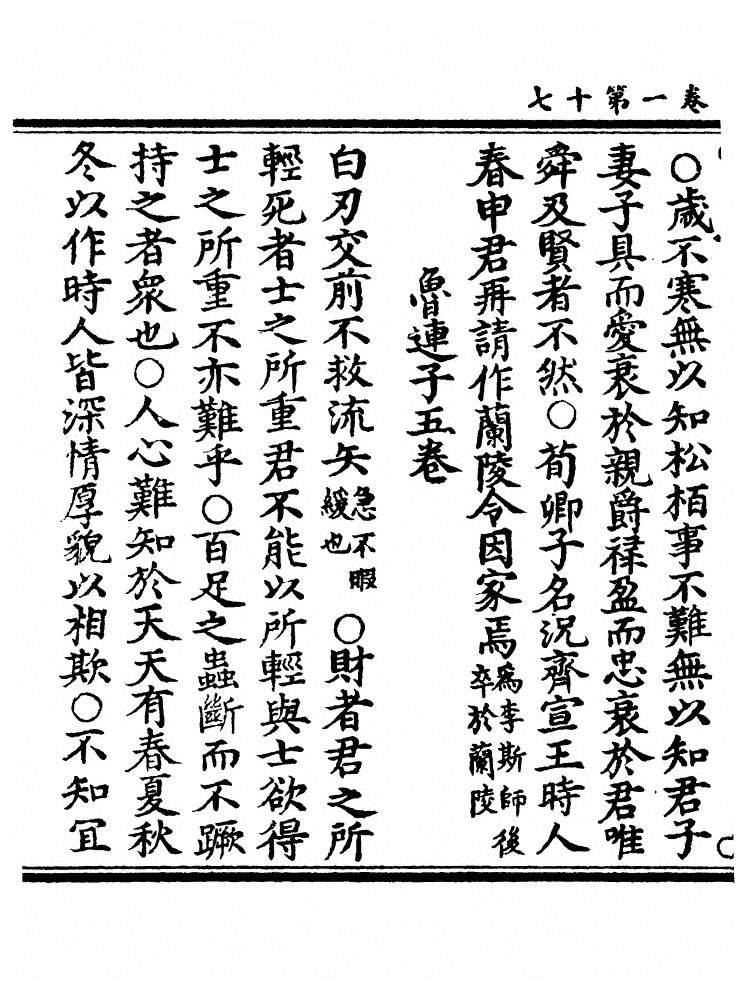 卷一第十七
○歲不寒無以知松栢事不難無以知君子
妻子具而愛衰於親爵祿盈而忠衰於君唯
舜及賢者不然○荀卿子名況齊宣王時人
春申君再請作蘭陵令因家焉爲李斯師後卒於蘭陵
魯連子五卷
白刃交前不救流矢急不暇緩也○財者君之所
輕死者士之所重君不能以所輕與士欲得
士之所重不亦難乎○百足之蟲斷而不蹶
持之者衆也○人心難知於天天有春夏秋
冬以作時人皆深情厚貌以相欺○不知冝